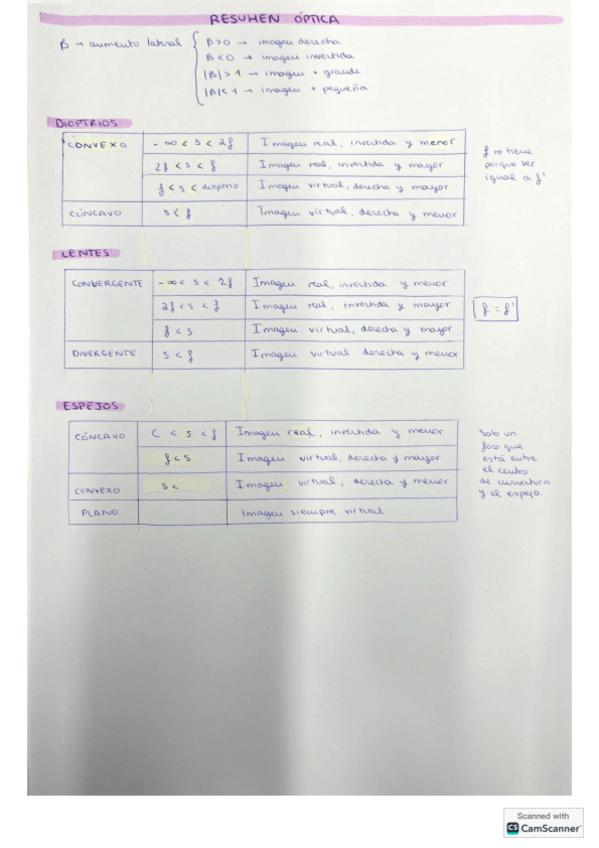 RESUMEN ÓPTICA
β → aumento lateral
β>0 → imagen derecha
β<0 → imagen invertida
|β|>1 → imagen + grande
|β|<1 → imagen + pequeña
DIOPTRIOS
CONVEXO - ∞ < s < 2f Imagen real, invertida y menor
2f < s < f Imagen real, invertida y mayor
f < s < dioptrio Imagen virtual, derecha y mayor
CÓNCAVO s < f Imagen virtual, derecha y menor
f no tiene
porque ser
igual a f'
LENTES
CONVERGENTE -∞ < s < 2f Imagen real, invertida y menor
2f < s < f Imagen real, invertida y mayor
f < s Imagen virtual, derecha y mayor
DIVERGENTE s < f Imagen virtual derecha y menor
f = f'
ESPEJOS
CÓNCAVO C < s < f Imagen real, invertida y menor
f < s Imagen virtual, derecha y mayor
CONVEXO s < Imagen virtual, derecha y menor
PLANO Imagen siempre virtual
Solo un
foco que
está entre
el centro
de curvatura
y el espejo.
Scanned with
CS CamScanner